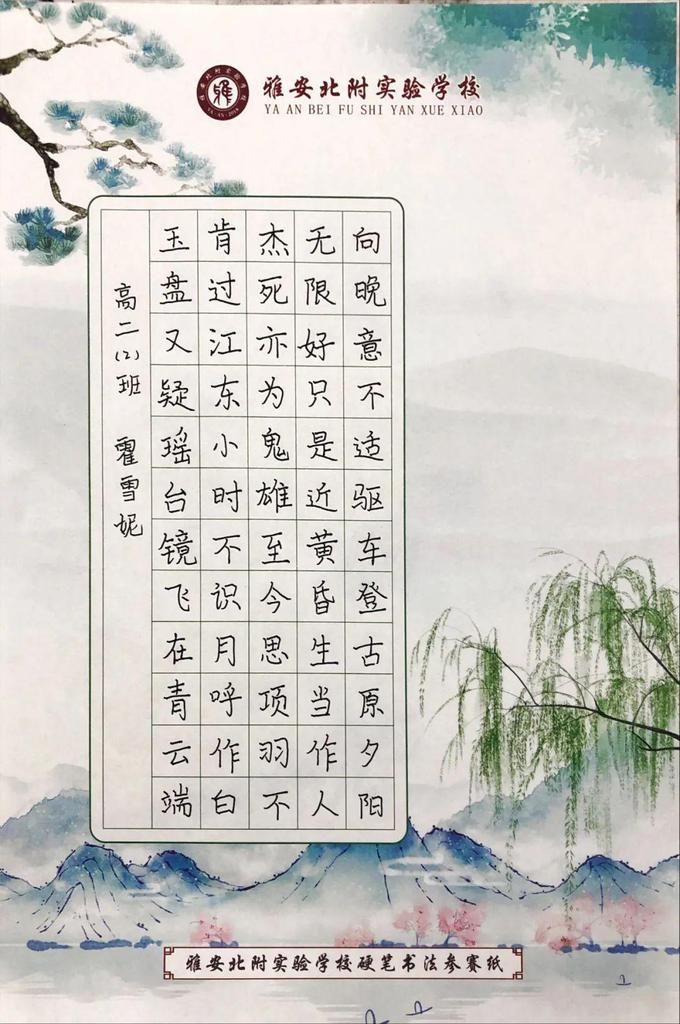 雅安北附实验学校
YA AN BEI FU SHI YAN XUE XIAO
向晚意不适驱车登古原夕阳
无限好只是近黄昏生当作人
杰死亦为鬼雄至今思项羽不
肯过江东小时不识月呼作白
玉盘又疑瑶台镜飞在青云端
高二(2)班 霍雪妮
雅安北附实验学校硬笔书法参赛纸